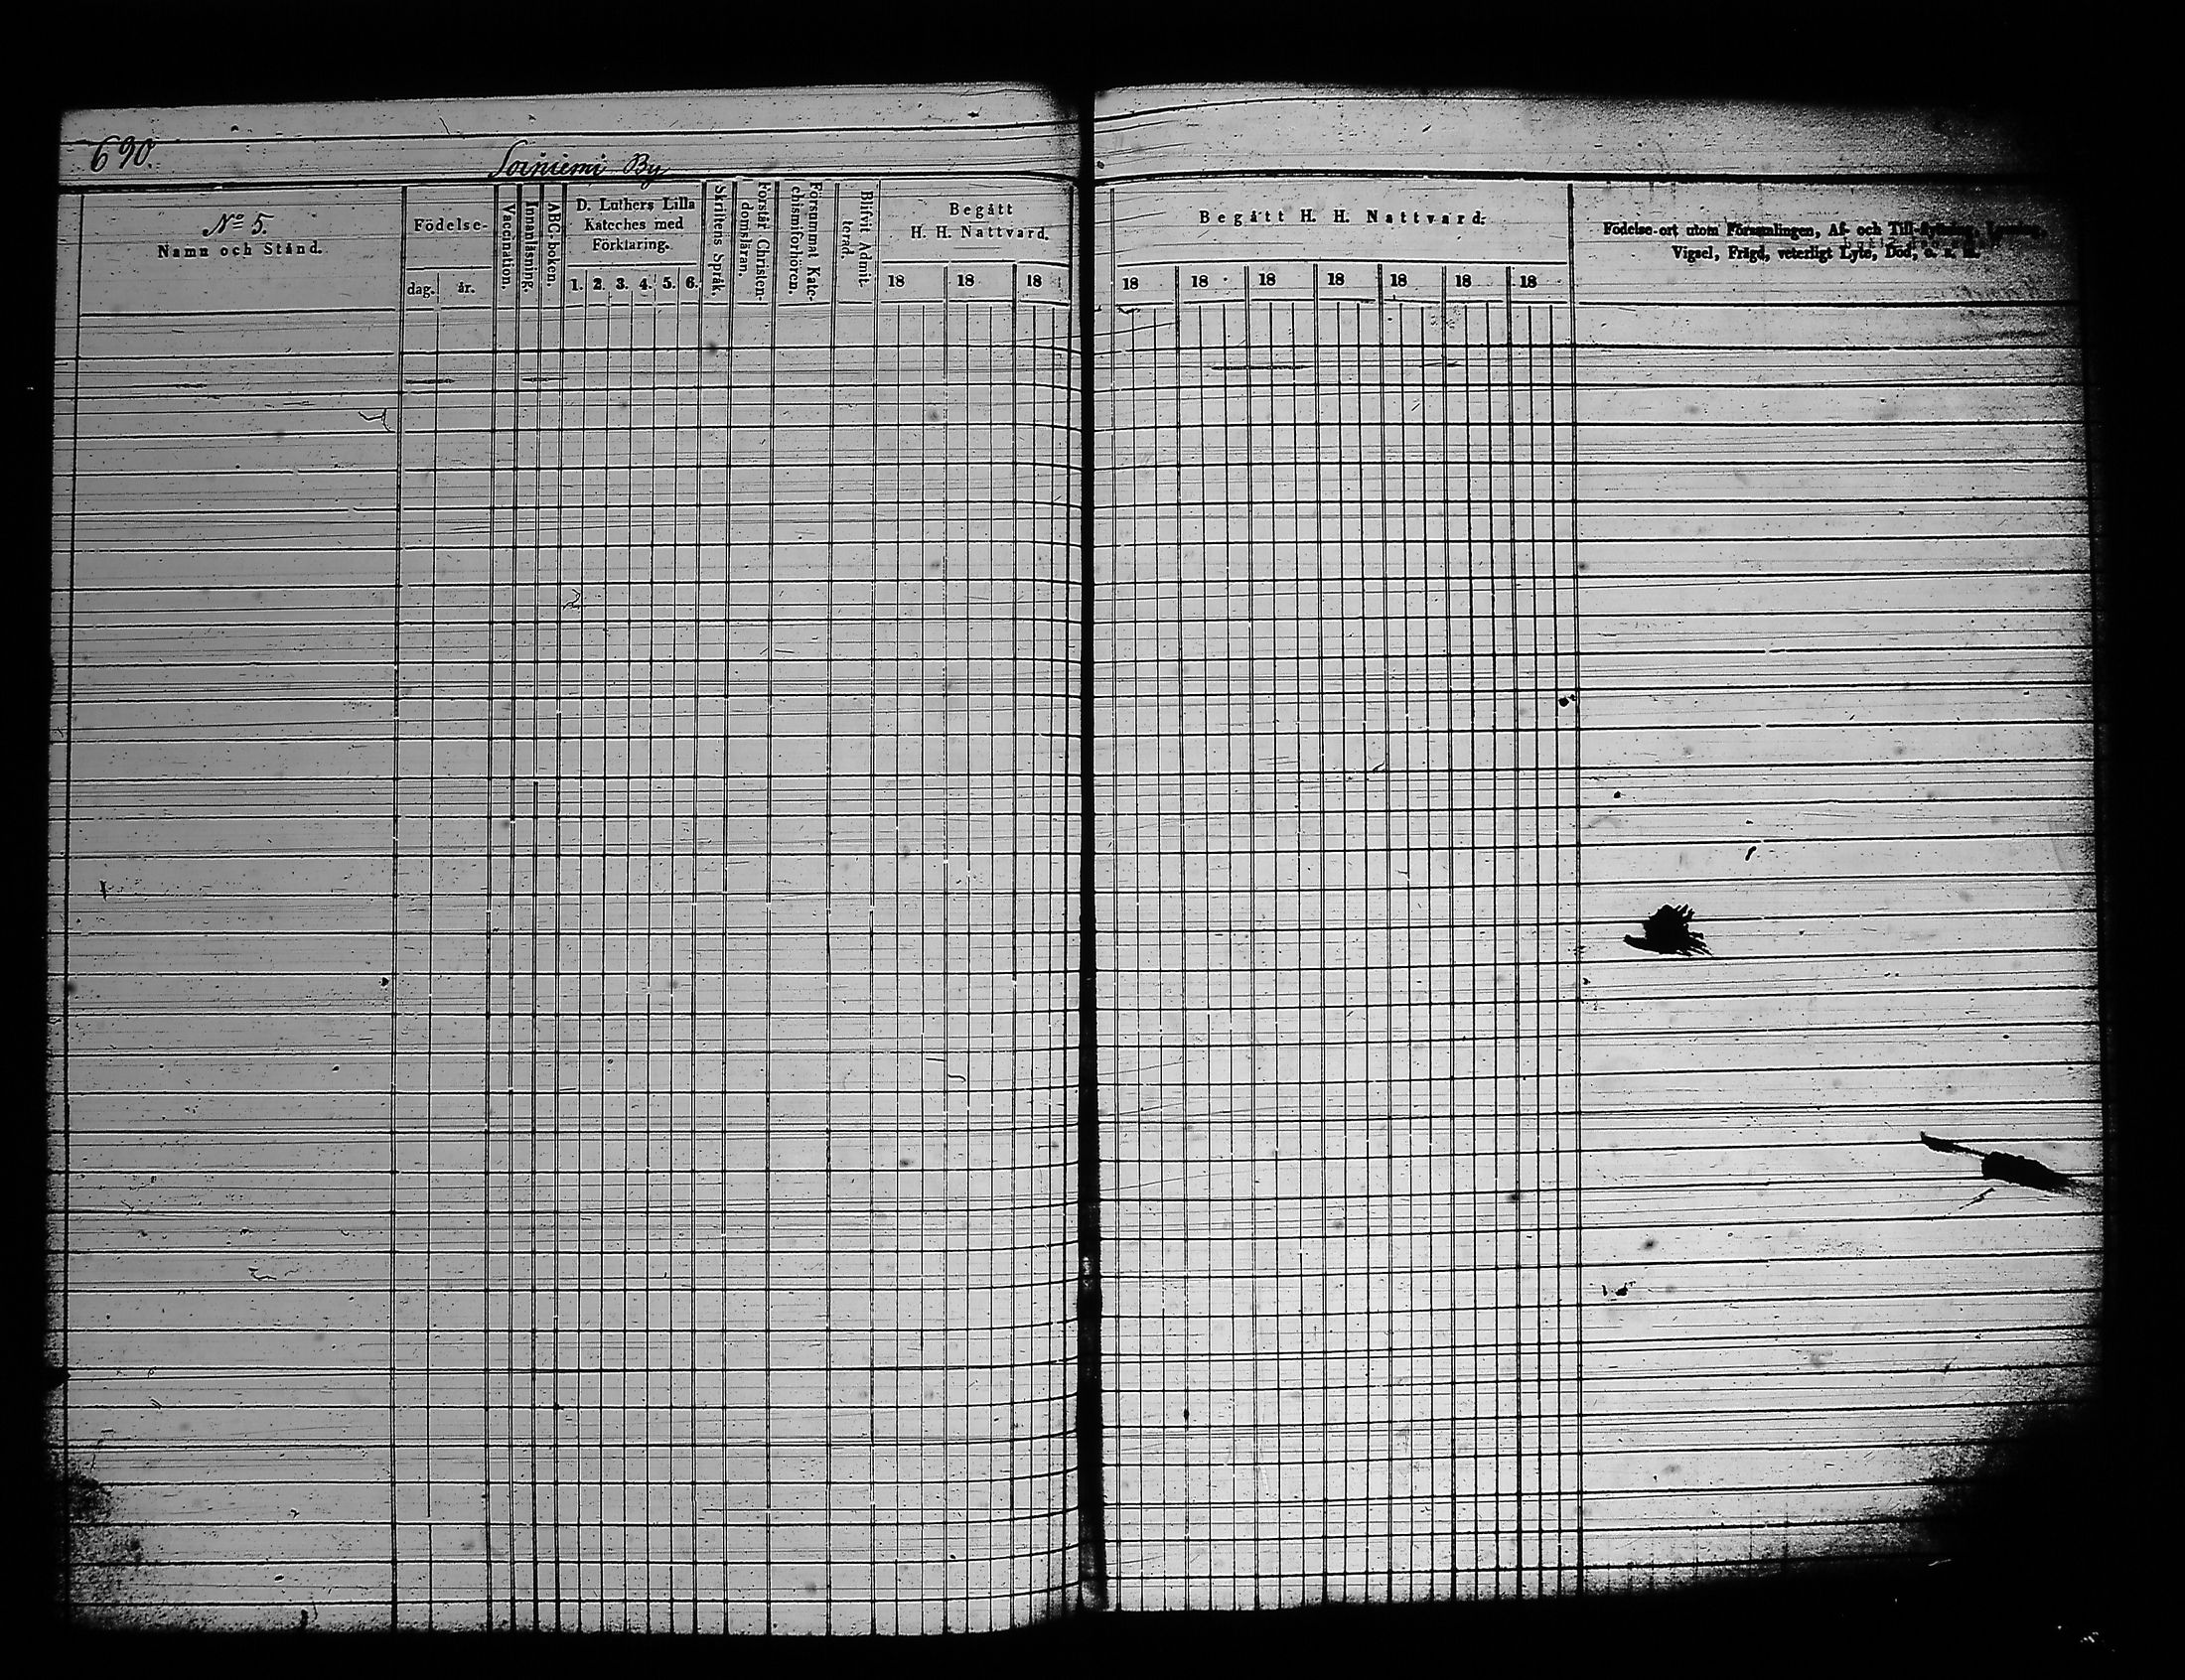 690.
Soiniemi By
№ 5.
Namn och Stånd.
Födelse-
dag. år.
Vaccination.
Innanläsning.
ABC-boken.
D. Luthers Lilla
Kateches med
Förklaring.
1. 2. 3. 4. 5. 6.
Skriftens Språk.
Förstår Christen-
domsläran.
Försummat Kate-
chismiförhören.
Blifvit Admit-
terad.
Begått
H. H. Nattvard.
18 18 18
Begått H. H. Nattvard.
18 18 18 18 18 18 18
Födelse-ort utom Församlingen, Af- och Till-flyttning,
Vigsel, Frägd, veterligt Lyte, Död, o. s. v.